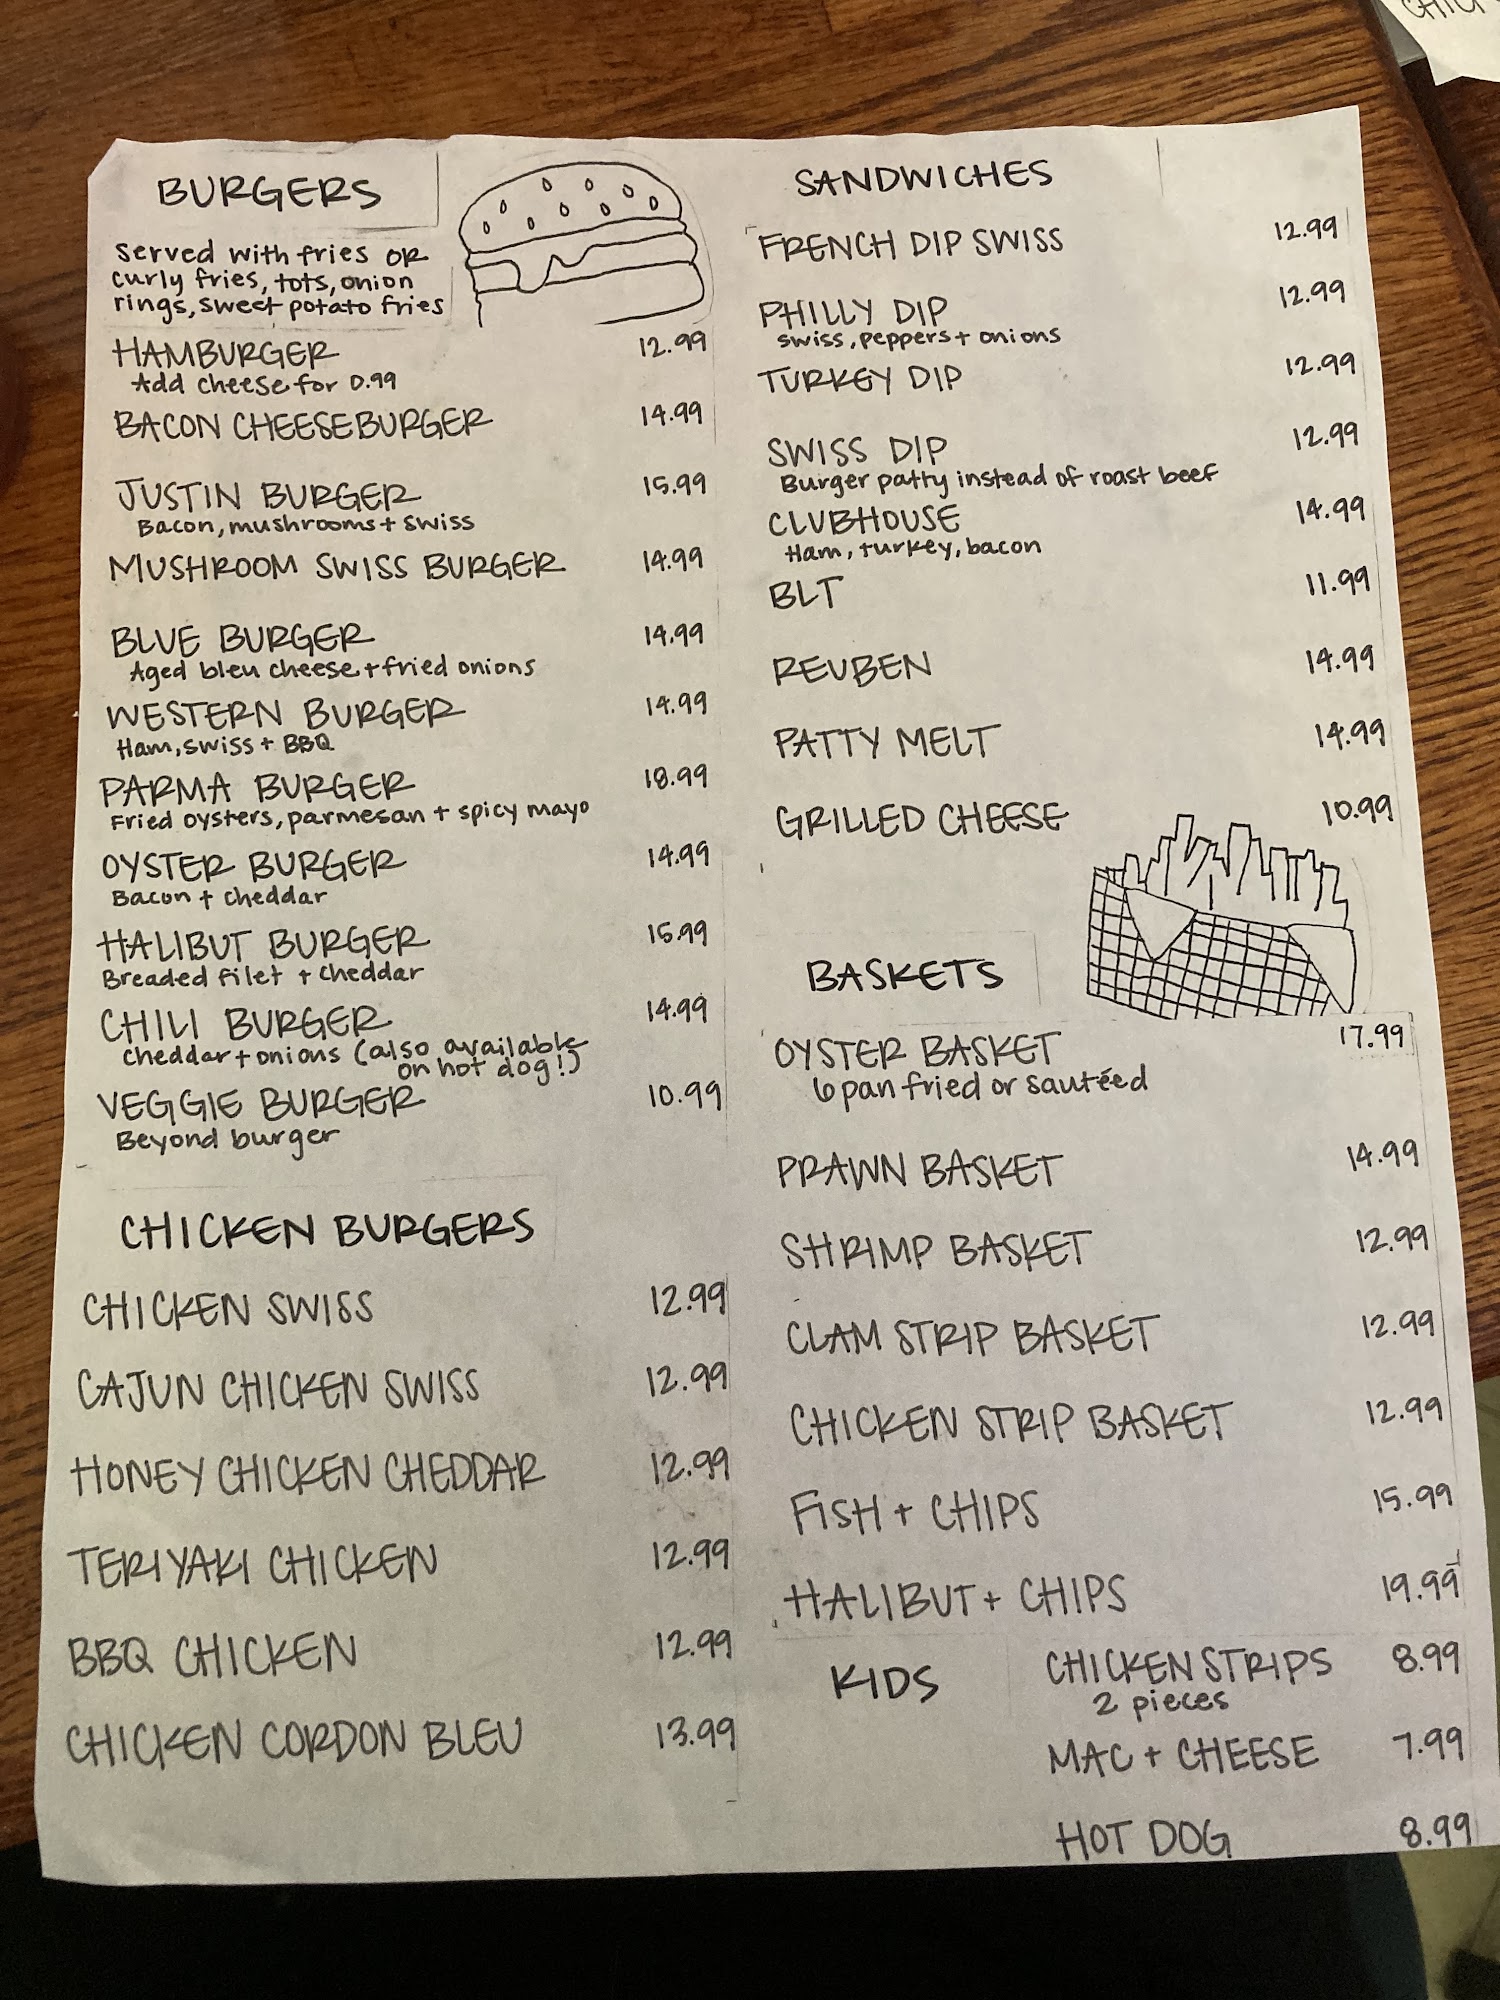 BURGERS
served with fries OR
curly fries, tots, onion
rings, sweet potato fries
HAMBURGER 12.99
Add cheese for 0.99
BACON CHEESEBURGER 14.99
JUSTIN BURGER 15.99
Bacon, mushrooms + swiss
MUSHROOM SWISS BURGER 14.99
BLUE BURGER 14.99
Aged bleu cheese + fried onions
WESTERN BURGER 14.99
Ham, swiss + BBQ
PARMA BURGER 18.99
Fried oysters, parmesan + spicy mayo
OYSTER BURGER 14.99
Bacon + cheddar
HALIBUT BURGER 15.99
Breaded filet + cheddar
CHILI BURGER 14.99
cheddar + onions (also available
on hot dog!)
VEGGIE BURGER 10.99
Beyond burger
CHICKEN BURGERS
CHICKEN SWISS 12.99
CAJUN CHICKEN SWISS 12.99
HONEY CHICKEN CHEDDAR 12.99
TERIYAKI CHICKEN 12.99
BBQ CHICKEN 12.99
CHICKEN CORDON BLEU 13.99
SANDWICHES
FRENCH DIP SWISS 12.99
PHILLY DIP 12.99
swiss, peppers + onions
TURKEY DIP 12.99
SWISS DIP 12.99
Burger patty instead of roast beef
CLUBHOUSE 14.99
Ham, turkey, bacon
BLT 11.99
REUBEN 14.99
PATTY MELT 14.99
GRILLED CHEESE 10.99
BASKETS
OYSTER BASKET 17.99
6 pan fried or sautéed
PRAWN BASKET 14.99
SHRIMP BASKET 12.99
CLAM STRIP BASKET 12.99
CHICKEN STRIP BASKET 12.99
FISH + CHIPS 15.99
HALIBUT + CHIPS 19.99
KIDS
CHICKEN STRIPS 8.99
2 pieces
MAC + CHEESE 7.99
HOT DOG 8.99